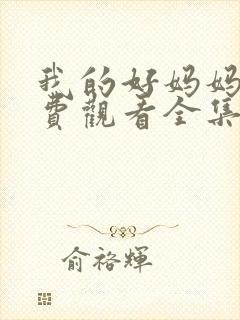 我的好妈妈
费觀看全集
俞裕輝